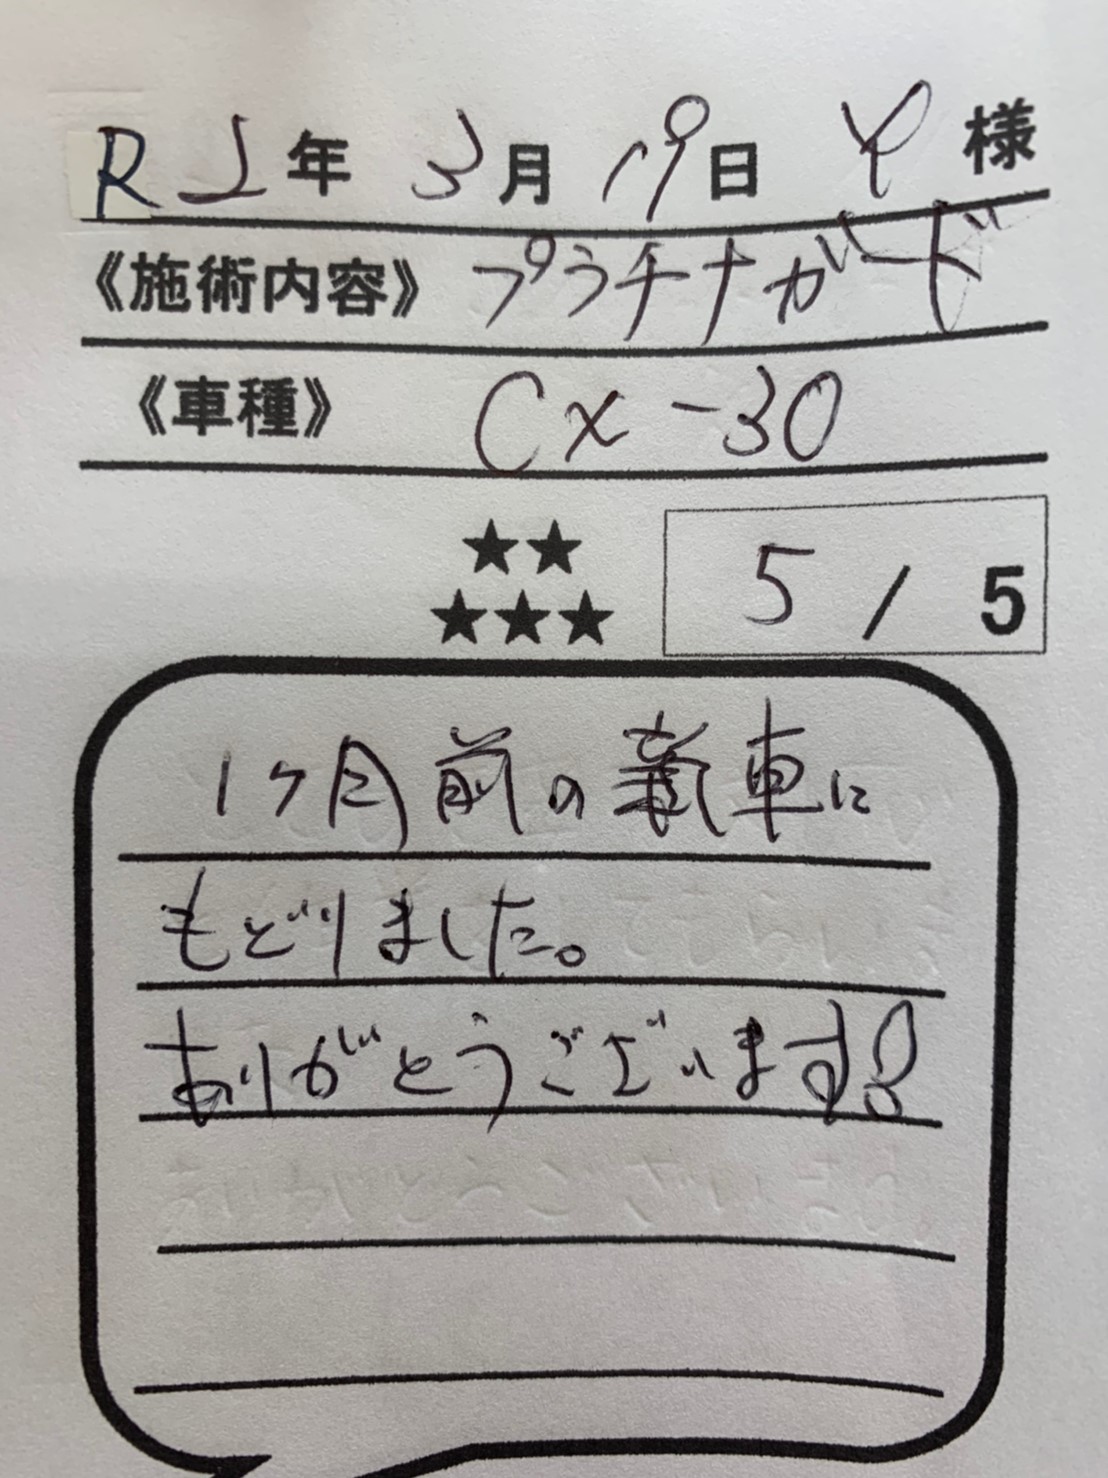 R 2年 3月 19日 Y 様
《施術内容》 プラチナガード
《車種》 CX-30
★★
★★★
5 / 5
1ヶ月前の新車に
もどりました。
ありがとうございます!!